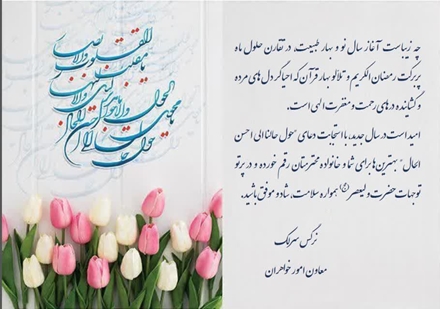 یا مقلب القلوب والابصار
یا مدبر اللیل والنهار
یا محول الحول والاحوال
حول حالنا الی احسن الحال
چه زیباست آغاز سال نو و بهار طبیعت، در تقارن حلول ماه
پربرکت رمضان الکریم و تلالو بهار قرآن که احیاگر دل های مرده
و گشاینده درهای رحمت و مغفرت الهی است.
امید است در سال جدید، با استجابت دعای "حول حالنا الی احسن
الحال" بهترین ها برای شما و خانواده محترمتان رقم خورده و در پرتو
توجهات حضرت ولیعصر (عج) همواره سلامت، شاد و موفق باشید.
نرگس سرلک
معاون امور خواهران